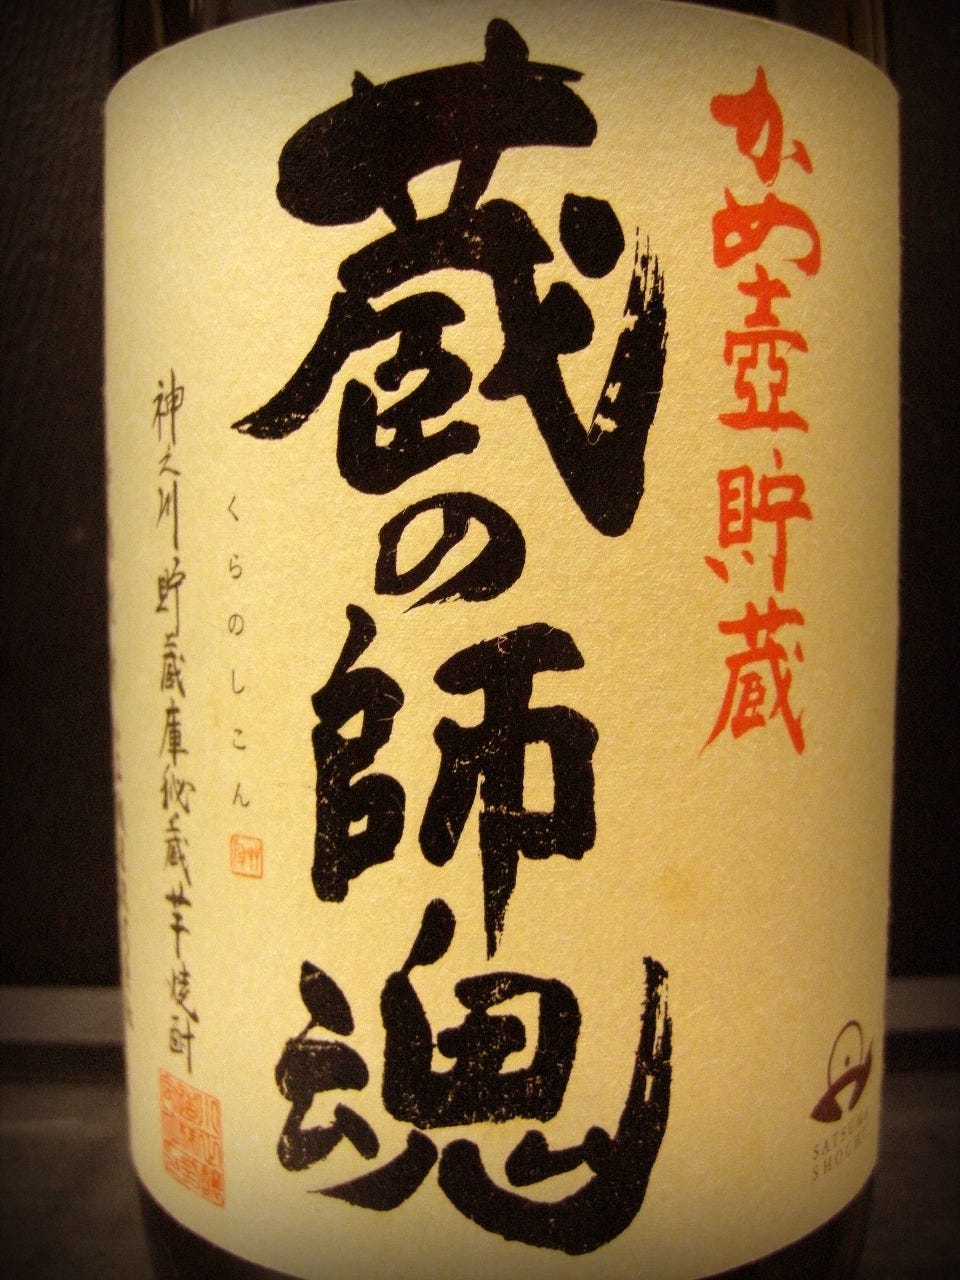 かめ壺貯蔵
蔵の師魂
くらのしこん
神之川貯蔵庫秘蔵芋焼酎
SATSUMA
SHOCHU